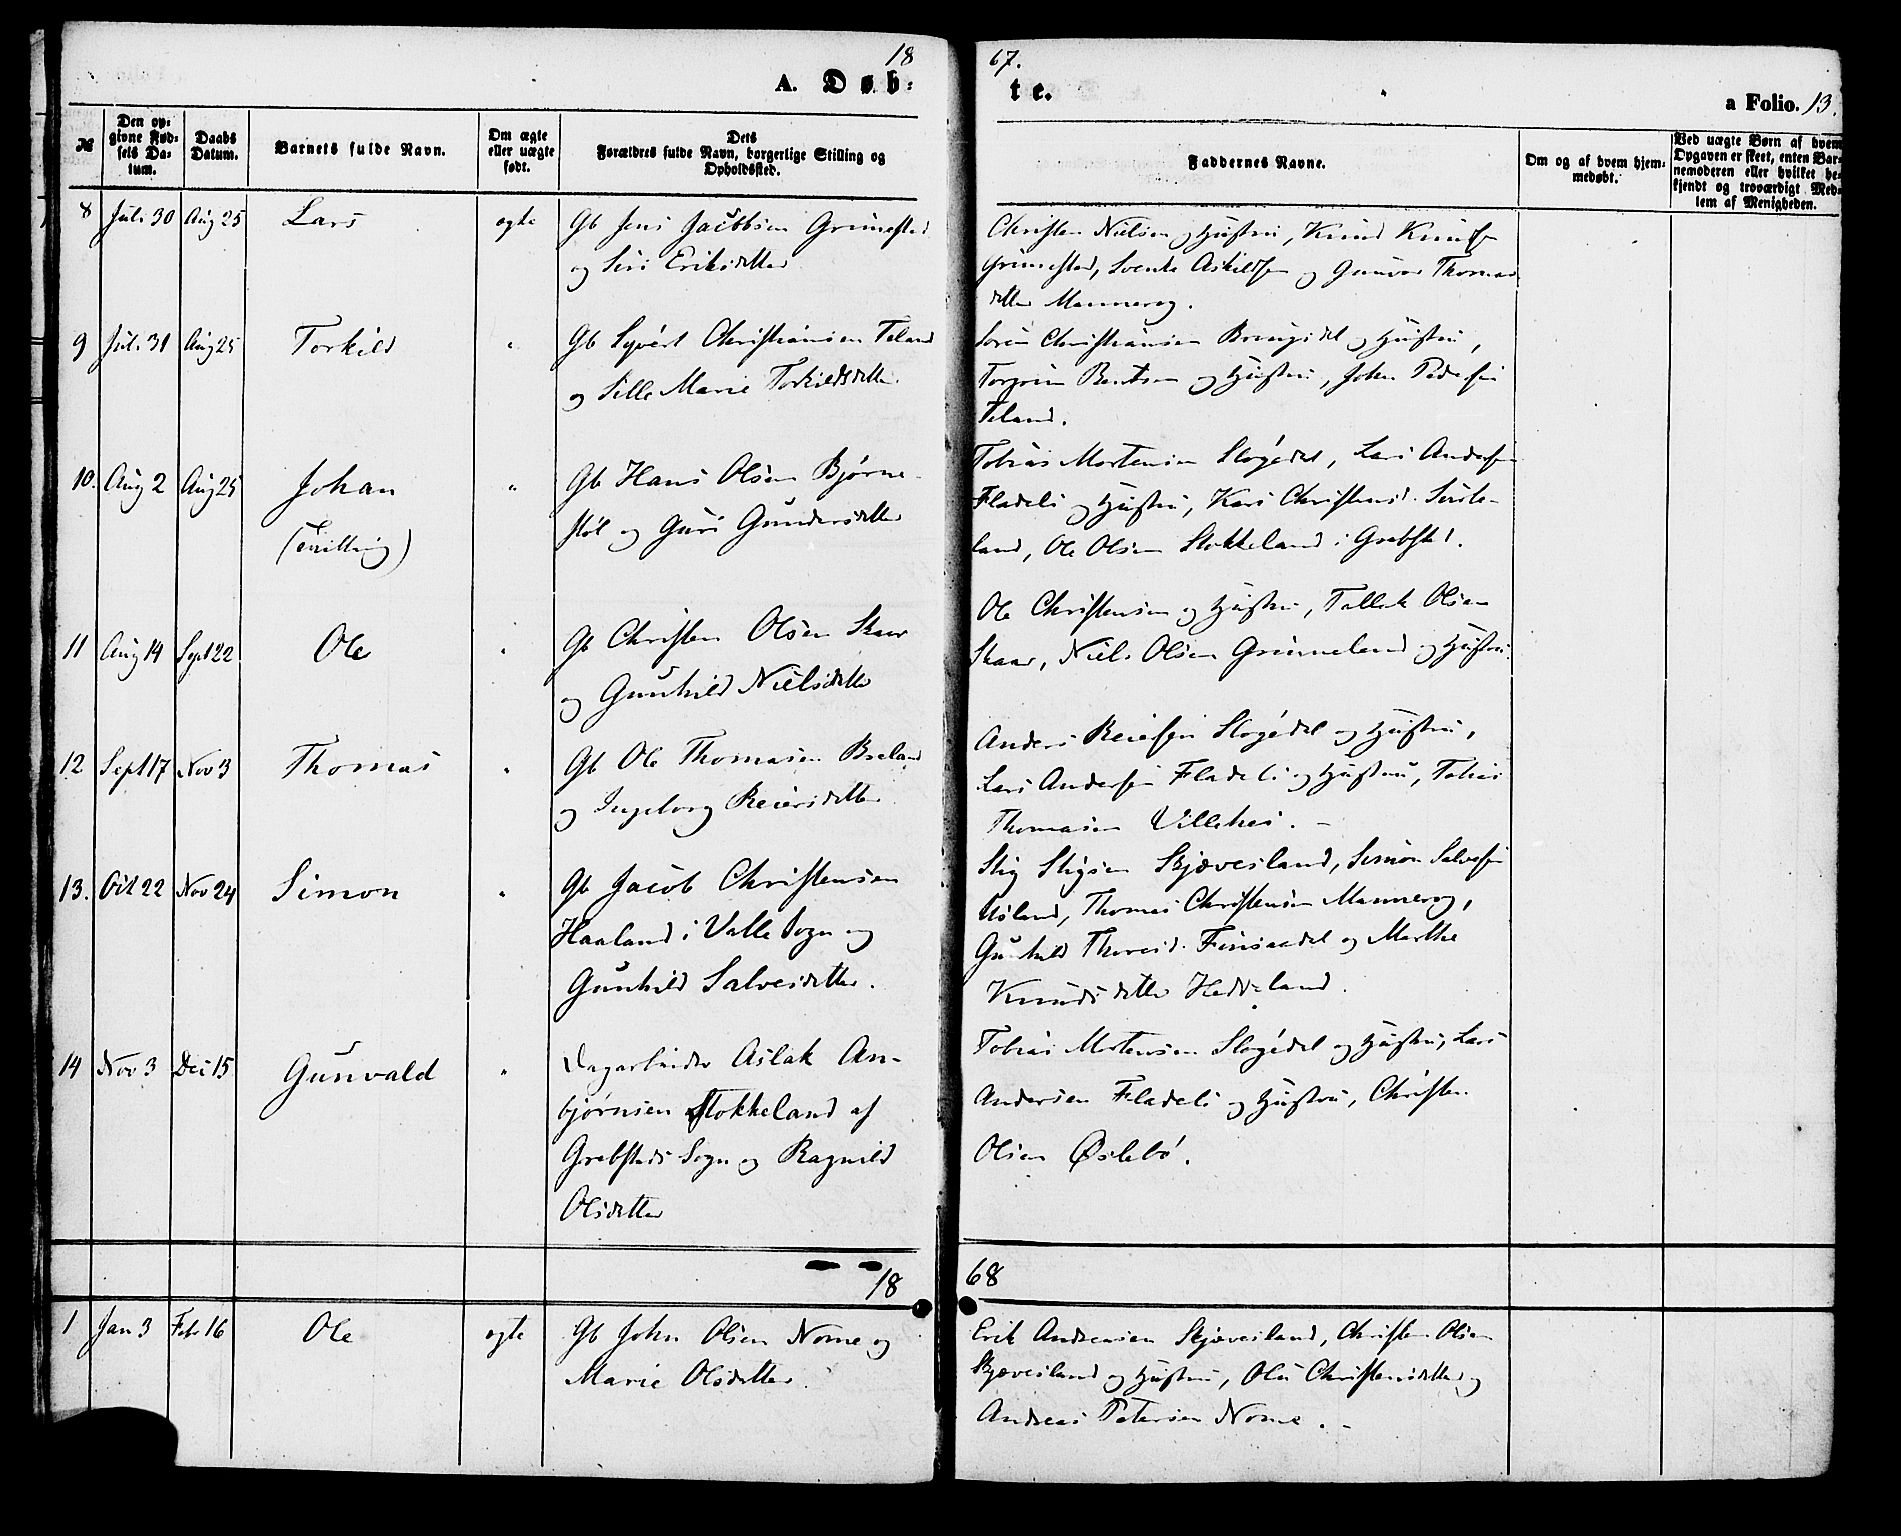 1867.
A. Døbte.
a Folio. 13.
№
Den opgivne Fødsels Datum.
Daabs Datum.
Barnets fulde Navn.
Om ægte eller uægte født.
Dets Forældres fulde Navn, borgerlige Stilling og Opholdssted.
Faddernes Navne.
Om og af hvem hjemmedøbt.
Ved uægte Børn af hvem Opgaven er skeet, enten Barnemoderen eller hvilket bekjendt og troværdigt Medlem af Menigheden.
8 Juli 30 Aug 25 Lars ægte Gb Jens Jacobsen Grimestad
og Siri Eriksdatter
Christen Nielsen og Hustru, Knud Knudsen
Grimestad, Svenke Askildsen og Gunvor Thomas
datter Mannerog.
9 Juli 31 Aug 25 Torkild " Gb Syvert Christiansen Teland
og Sille Marie Torkildsdatter.
Søren Christiansen og Hustru,
Torgrim Bentsen og Hustru, John Pedersen
Teland.
10. Aug 2 Aug 25 Johan " Gb Hans Olsen Bjørne-
(Tvilling) støl og Guri Gundersdatter
Tobias Mortensen Slogedal, Lars Andersen
Fladeli og Hustru, Kari Christensd.
land, Ole Olsen Stokkeland i Grebsted.
11 Aug 14 Sept 22 Ole " Gb Christen Olsen Skaar
og Gunhild Nielsdatter
Ole Christensen og Hustru, Tallak Olsen
Skaar, Niels Olsen Grimeland og Hustru.
12 Sept 17 Nov 3 Thomas " Gb Ole Thomasen Breland
og Ingeborg Reiersdatter
Anders Reiersen Slogedal og Hustru,
Lars Andersen Fladeli og Hustru, Tobias
Thomasen Villehei. –
13. Oct 22 Nov 24 Simon " Gb Jacob Christensen
Haaland i Valle Sogn og
Gunhild Salvesdatter.
Stig Stigsen Skjævesland, Simon Salvesen
Usland, Thomas Christensen Mannerog,
Gunhild Thoresd. Finsaadal og Marthe
Knudsdatter Heddeland.
14 Nov 3 Dec 15 Gunvald " Dagarbeider Aslak An-
bjørnsen Stokkeland af
Grebstads Sogn og Ragnild
Olsdatter
Tobias Mortensen Slogedal og Hustru, Lars
Andersen Fladeli og Hustru, Christen
Olsen Øslebø.
1868
1 Jan 3 Febr 16 Ole ægte Gb John Olsen Nome og
Marie Olsdatter.
Erik Andreasen Skjævesland, Christen Olsen
Skjævesland og Hustru, Christensdatter og
Andreas Petersen Nome. –